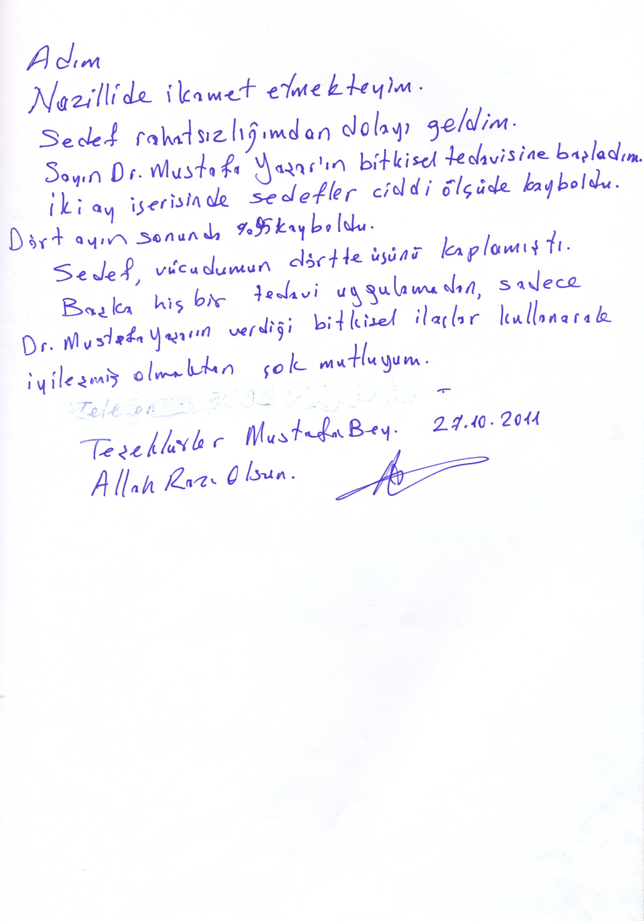 Adım
Nazillide ikamet etmekteyim.
Sedef rahatsızlığımdan dolayı geldim.
Sayın Dr. Mustafa Yaşar'ın bitkisel tedavisine başladım.
İki ay içerisinde sedefler ciddi ölçüde kayboldu.
Dört ayın sonunda %95 kayboldu.
Sedef, vücudumun dörtte üçünü kaplamıştı.
Başka hiç bir tedavi uygulamadan, sadece
Dr. Mustafa Yaşarın verdiği bitkisel ilaçlar kullanarak
iyileşmiş olmaktan çok mutluyum.
Teşekkürler Mustafa Bey. 27.10.2011
Allah Razı Olsun.